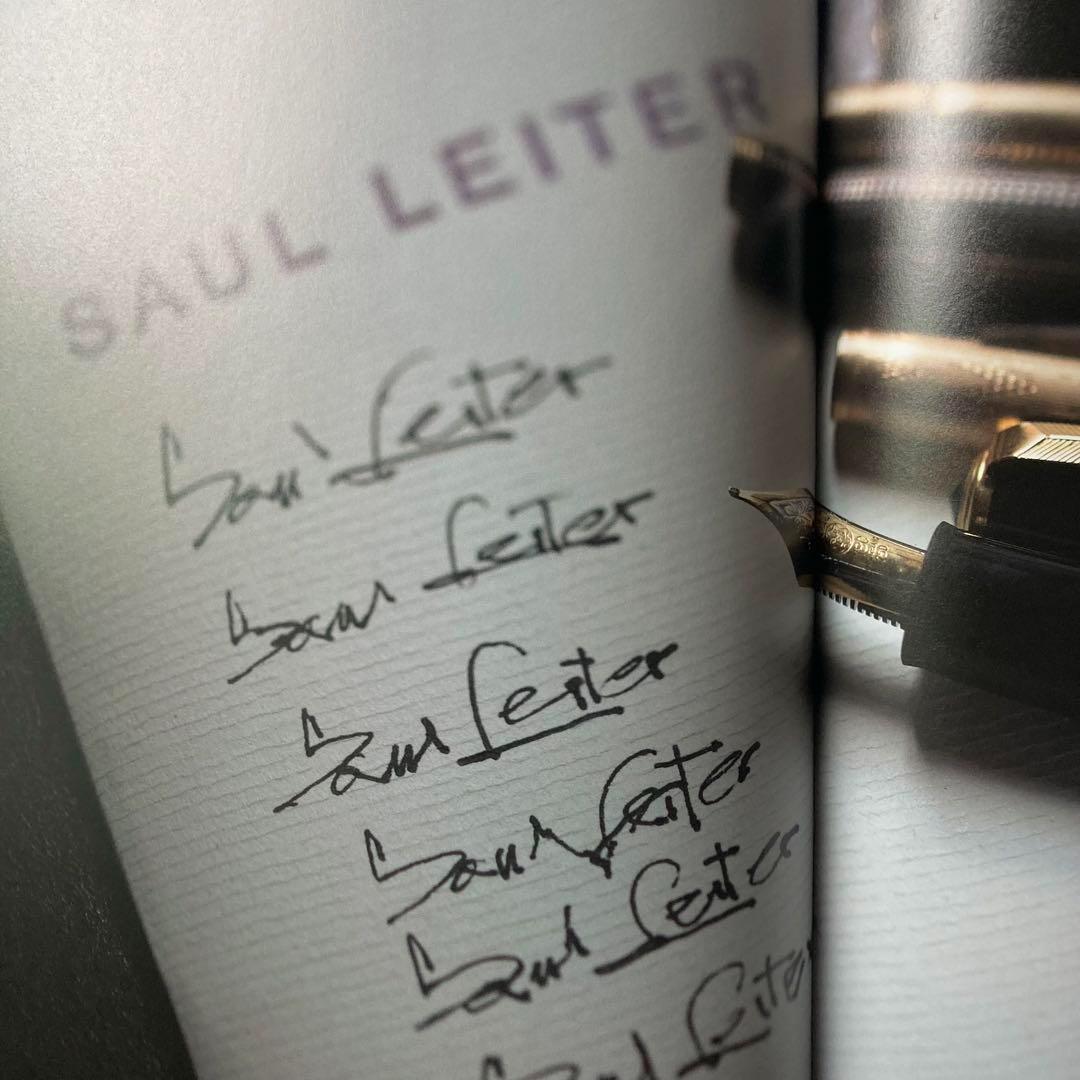 SAUL LEITER
Saul Leiter
Saul Leiter
Saul Leiter
Saul Leiter
Saul Leiter
Saul Leiter